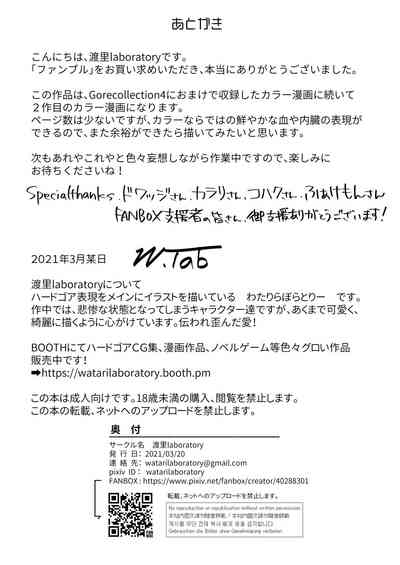 あとがき
こんにちは、渡里laboratoryです。
「ファンブル」をお買い求めいただき、本当にありがとうございました。
この作品は、Gorecollection4におまけで収録したカラー漫画に続いて
２作目のカラー漫画になります。
ページ数は少ないですが、カラーならではの鮮やかな血や内臓の表現が
できるので、また余裕ができたら描いてみたいと思います。
次もあれやこれやと色々妄想しながら作業中ですので、楽しみに
お待ちくださいね！
Specialthanks.ドワッジさん.カラリさん.コハクさん.ふあけもんさん
FANBOX支援者の皆さん.御支援ありがとうございます!
2021年3月某日 W.Tab
渡里laboratoryについて
ハードゴア表現をメインにイラストを描いている わたりらぼらとりー です。
作中では、悲惨な状態となってしまうキャラクター達ですが、あくまで可愛く、
綺麗に描くように心がけています。伝われ歪んだ愛！
BOOTHにてハードゴアCG集、漫画作品、ノベルゲーム等色々グロい作品
販売中です！
➡https://watarilaboratory.booth.pm
この本は成人向けです。18歳未満の購入、閲覧を禁止します。
この本の転載、ネットへのアップロードを禁止します。
奥 付
サークル名 渡里laboratory
発 行 日： 2021/03/20
連 絡 先： watarilaboratory@gmail.com
pixiv ID： watarilaboratory
FANBOX : https://www.pixiv.net/fanbox/creator/40288301
転載、ネットへのアップロードを禁止します。
No reproduction or republication without written permission.
Gebrauchen Sie Bilder ohne Genehmigung verboten.